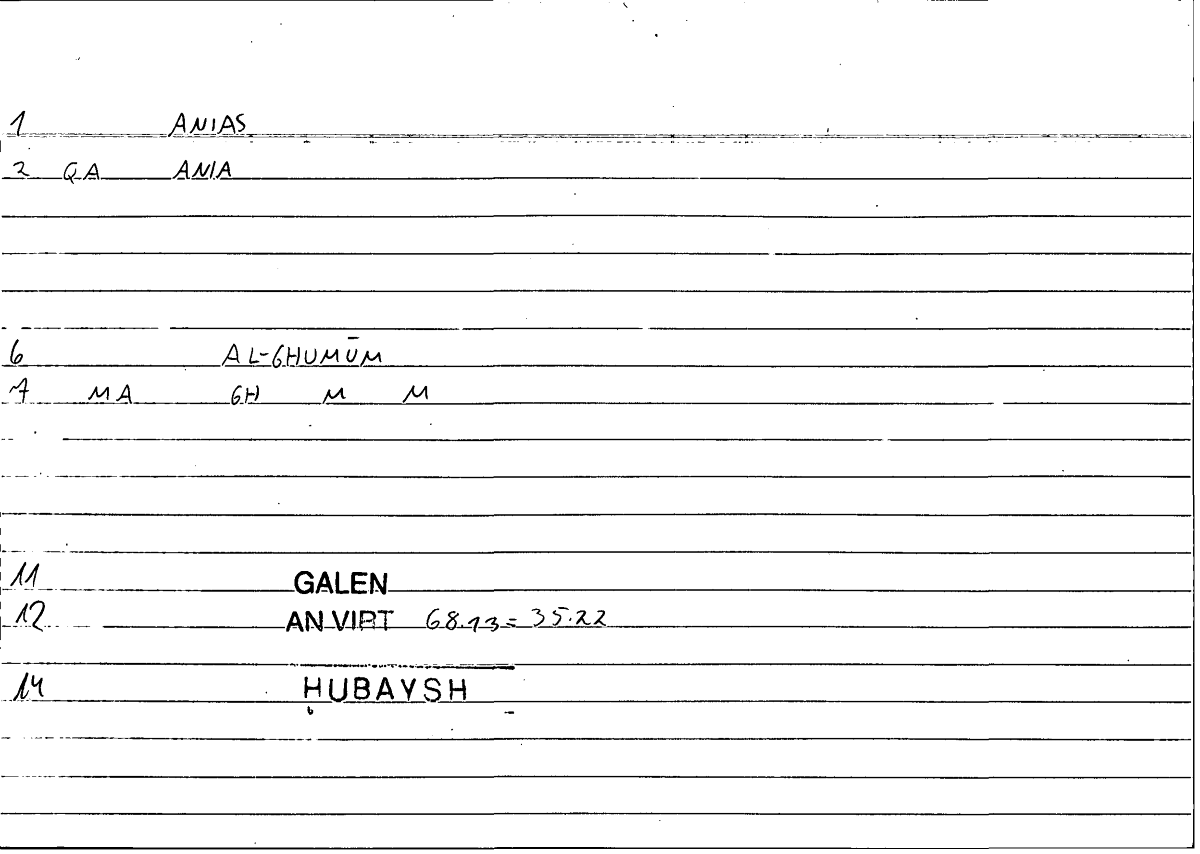 1 ANIAS
2 QA ANIA
6 AL-GHUMŪM
7 MA GH M M
11 GALEN
12 AN VIRT 68.13 = 35.22
14 ḤUBAYSH